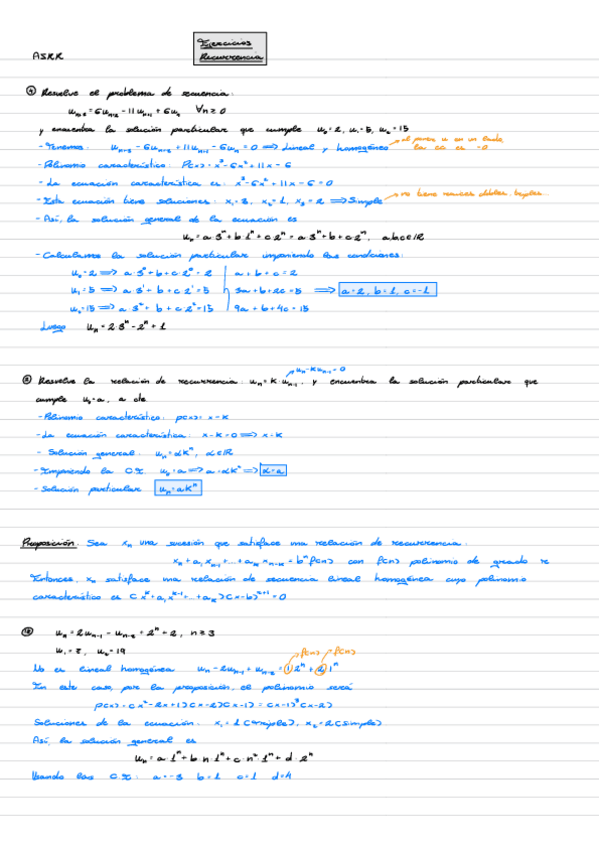 Ejercicios
Recurrencia
ASRR
① Resuelve el problema de recuencia:
uₙ₊₃ = 6uₙ₊₂ - 11uₙ₊₁ + 6uₙ ∀n ≥ 0
y encuentra la solución particular que cumple u₀ = 2, u₁ = 5, u₂ = 15
- Tenemos: uₙ₊₃ - 6uₙ₊₂ + 11uₙ₊₁ - 6uₙ = 0 ⟹ Lineal y homogéneo
- Polinomio característico: P(x) = x³ - 6x² + 11x - 6
- La ecuación característica es: x³ - 6x² + 11x - 6 = 0
- Esta ecuación tiene soluciones: x₁ = 3, x₂ = 1, x₃ = 2 ⟹ Simple
no tiene raíces dobles, triples...
- Así, la solución general de la ecuación es
uₙ = a·3ⁿ + b·1ⁿ + c·2ⁿ = a·3ⁿ + b + c·2ⁿ, a,b,c ∈ ℝ
- Calculamos la solución particular imponiendo las condiciones:
u₀ = 2 ⟹ a·3⁰ + b + c·2⁰ = 2 a + b + c = 2
u₁ = 5 ⟹ a·3¹ + b + c·2¹ = 5 3a + b + 2c = 5 ⟹ a = 2, b = 1, c = -1
u₂ = 15 ⟹ a·3² + b + c·2² = 15 9a + b + 4c = 15
Luego uₙ = 2·3ⁿ - 2ⁿ + 1
uₙ - Kuₙ₋₁ = 0
Resuelve la relación de recurrencia: uₙ = K·uₙ₋₁, y encuentra la solución particular que
cumple u₀ = a, a cte
- Polinomio característico: p(x) = x - K
- La ecuación característica: x - K = 0 ⟹ x = K
- Solución general: uₙ = αKⁿ, α ∈ ℝ
- Imponiendo la C.I. u₀ = a ⟹ a = αK⁰ ⟹ α = a
- Solución particular uₙ = aKⁿ
Proposición: Sea xₙ una sucesión que satisface una relación de recurrencia:
xₙ + a₁xₙ₋₁ + ... + aₖxₙ₋ₖ = bⁿf(n) con f(n) polinomio de grado r
Entonces, xₙ satisface una relación de secuencia lineal homogénea cuyo polinomio
característico es (xᵏ + a₁xᵏ⁻¹ + ... + aₖ)(x-b)ʳ⁺¹ = 0
uₙ = 2uₙ₋₁ - uₙ₋₂ = 2ⁿ + 2, n ≥ 3
u₁ = 7, u₂ = 19
f(n) f(n)
No es lineal homogénea uₙ - 2uₙ₋₁ + uₙ₋₂ = 1·2ⁿ + 2·1ⁿ
En este caso, por la proposición, el polinomio será
p(x) = (x² - 2x + 1)(x-2)(x-1) = (x-1)³(x-2)
Soluciones de la ecuación: x₁ = 1 (triple), x₂ = 2 (simple)
Así, la solución general es
uₙ = a·1ⁿ + b·n·1ⁿ + c·n²·1ⁿ + d·2ⁿ
Usando las C.I.: a = -3 b = 1 c = 1 d = 4